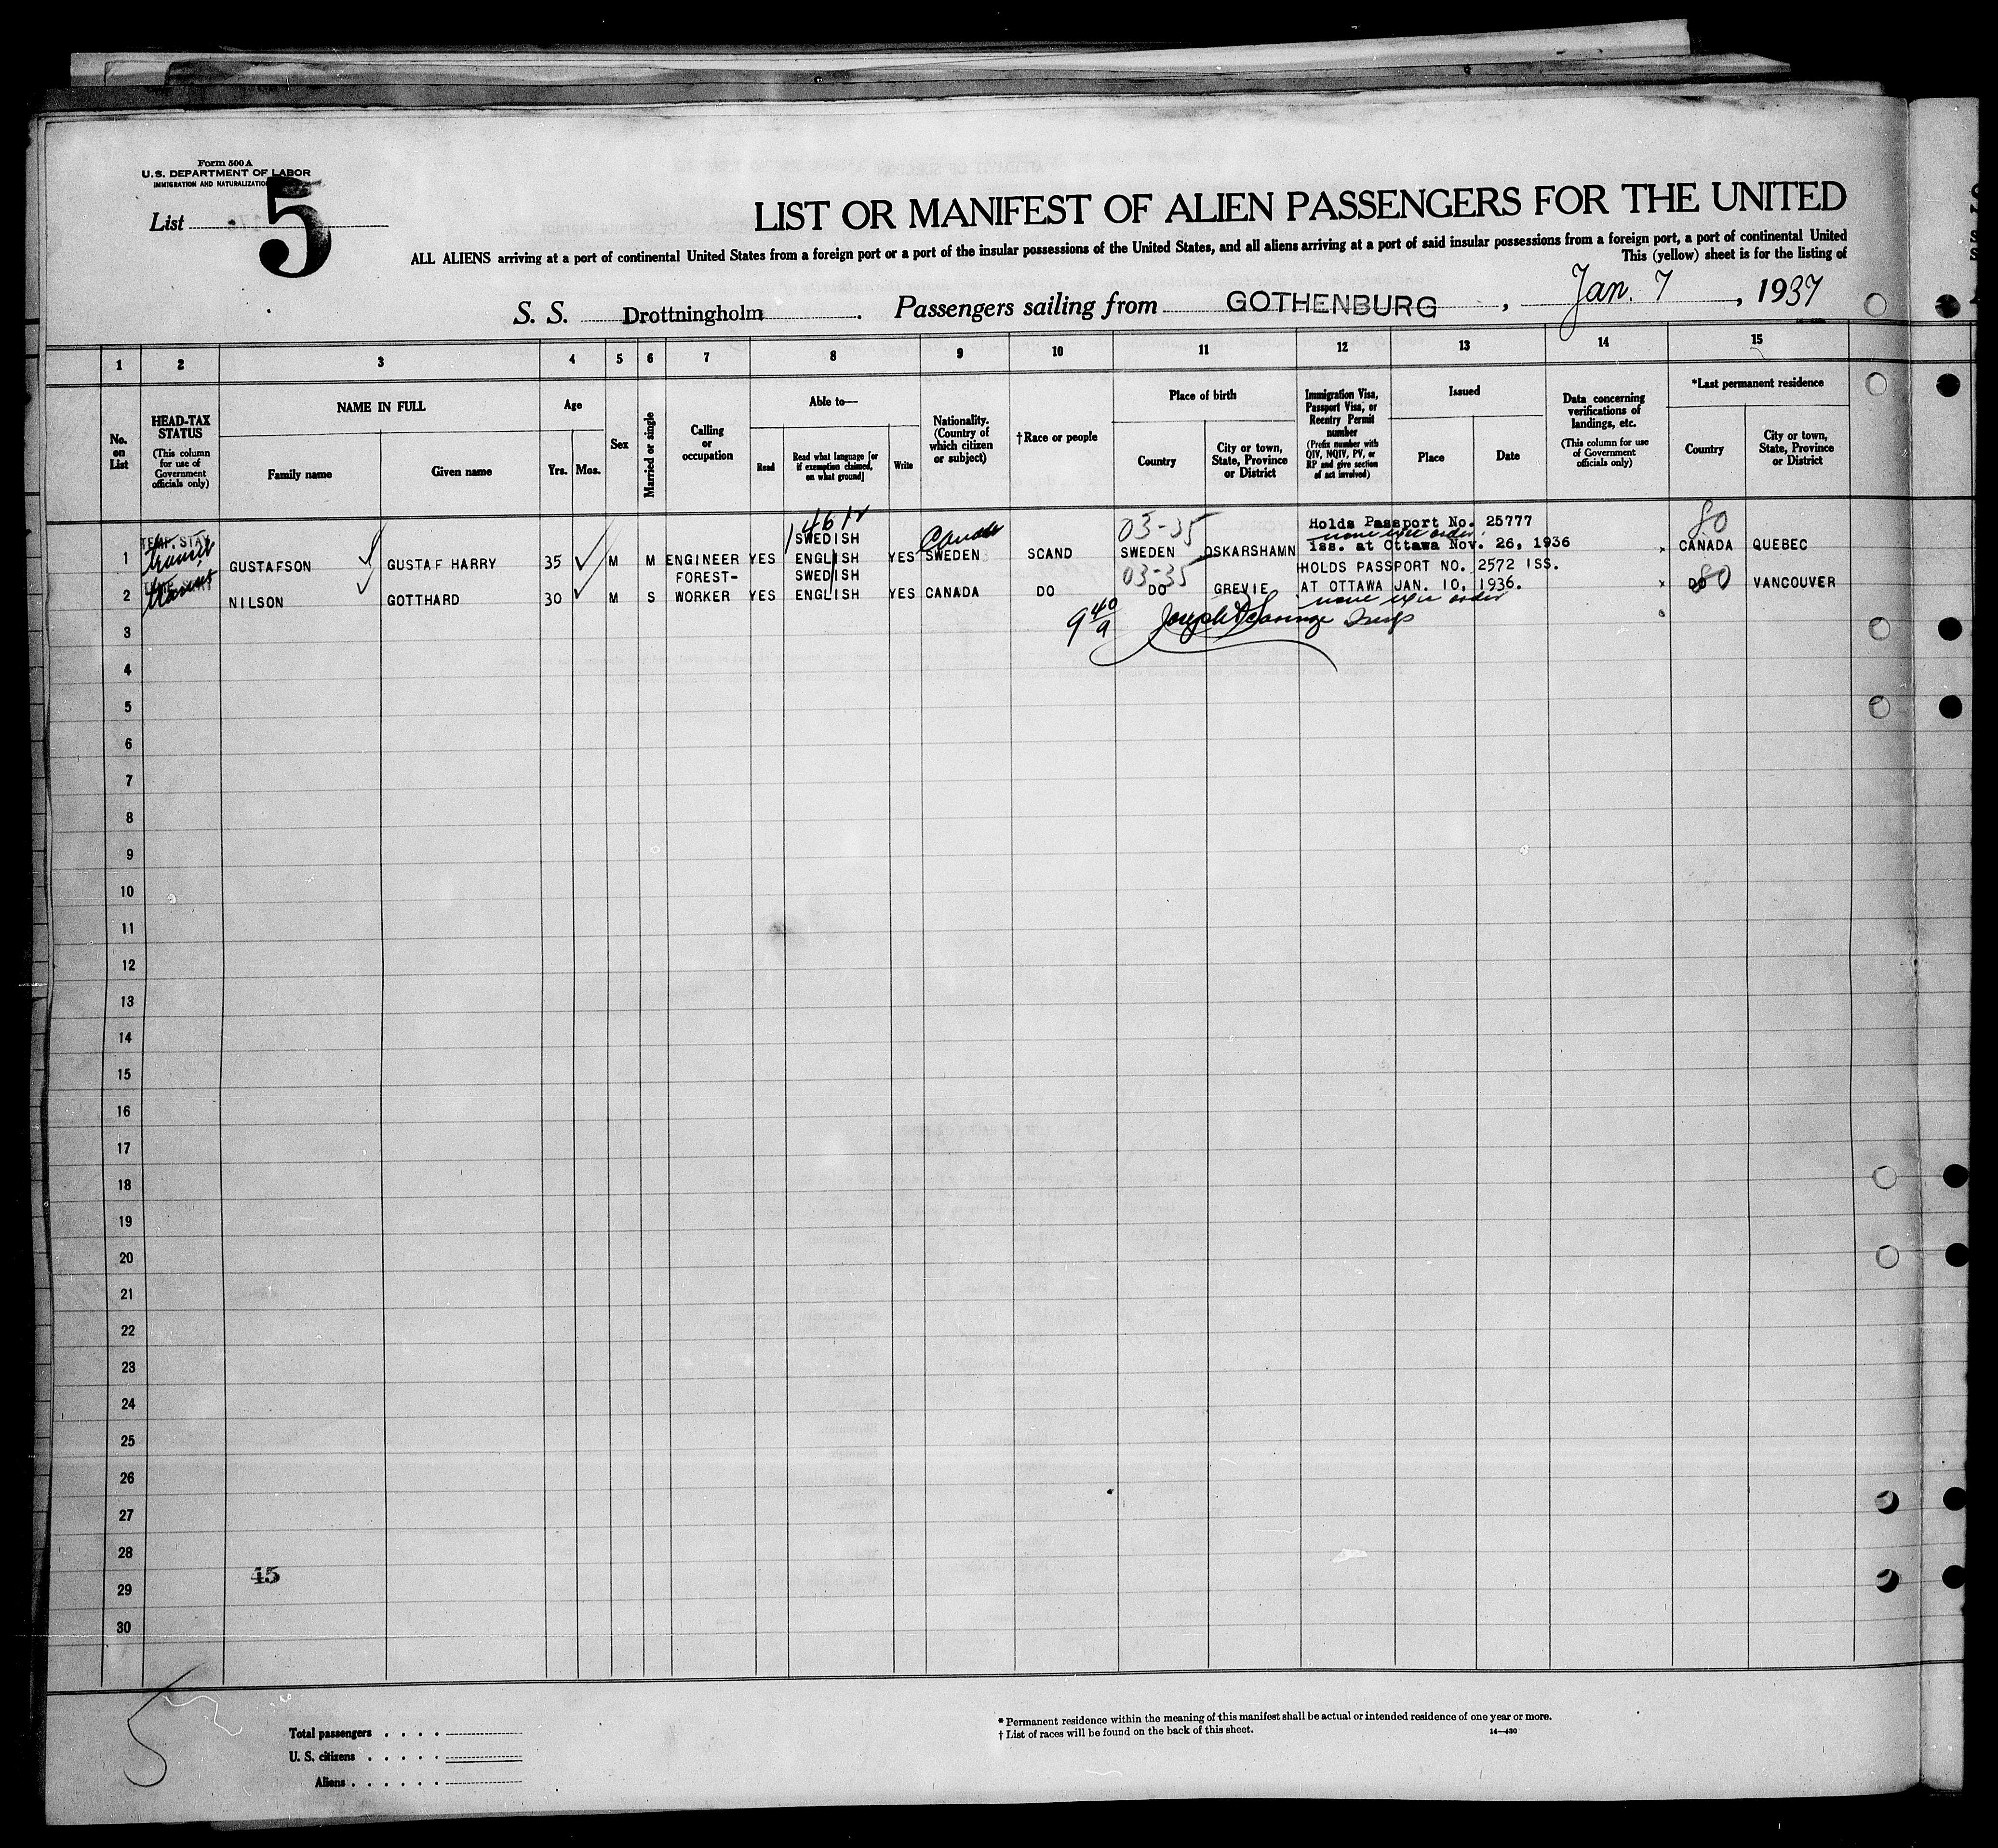 Form 500 A
U. S. DEPARTMENT OF LABOR
IMMIGRATION AND NATURALIZATION
List 5
LIST OR MANIFEST OF ALIEN PASSENGERS FOR THE UNITED
ALL ALIENS arriving at a port of continental United States from a foreign port or a port of the insular possessions of the United States, and all aliens arriving at a port of said insular possessions from a foreign port, a port of continental United
This (yellow) sheet is for the listing of
S. S. Drottningholm. Passengers sailing from GOTHENBURG, Jan. 7, 1937
1 2 3 4 5 6 7 8 9 10 11 12 13 14 15
No. on List
HEAD-TAX STATUS (This column for use of Government officials only)
NAME IN FULL
Family name
Given name
Age
Yrs.
Mos.
Sex
Married or single
Calling or occupation
Able to—
Read
Read what language [or if exemption claimed, on what ground]
Write
Nationality. (Country of which citizen or subject)
†Race or people
Place of birth
Country
City or town, State, Province or District
Immigration Visa, Passport Visa, or Reentry Permit number (Prefix number with QIV, NQIV, PV, or RP and give section of act involved)
Issued
Place
Date
Data concerning verifications of landings, etc. (This column for use of Government officials only)
*Last permanent residence
Country
City or town, State, Province or District
03-35 Holds Passport No. 25777 80
TEMP. STAY SWEDISH Canada iss. at Ottawa Nov. 26, 1936
1 transit GUSTAFSON GUSTAF HARRY 35 M M ENGINEER YES ENGLISH YES SWEDEN SCAND SWEDEN OSKARSHAMN x CANADA QUEBEC
FOREST- SWEDISH 03-35 HOLDS PASSPORT NO. 2572 ISS.
2 transit NILSON GOTTHARD 30 M S WORKER YES ENGLISH YES CANADA DO DO GREVIE AT OTTAWA JAN. 10, 1936. x DO 80 VANCOUVER
3
4
5
6
7
8
9
10
11
12
13
14
15
16
17
18
19
20
21
22
23
24
25
26
27
28
45
29
30
5
Total passengers . . . .
U. S. citizens . . . . .
Aliens . . . . . .
* Permanent residence within the meaning of this manifest shall be actual or intended residence of one year or more.
† List of races will be found on the back of this sheet. 14—430